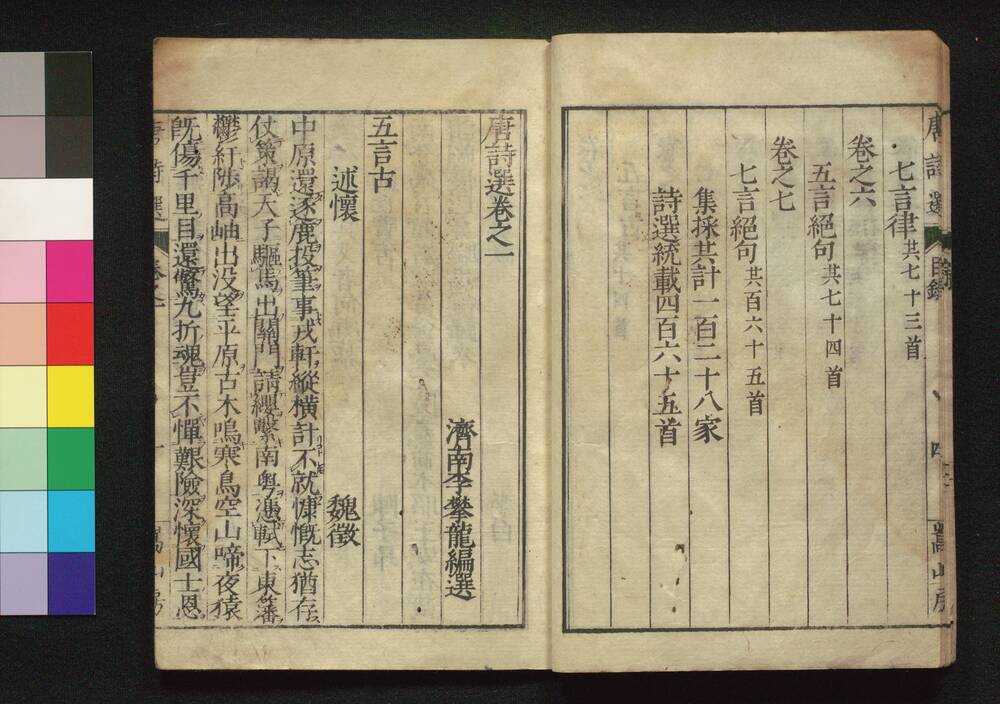 唐詩選 目録 四 嵩山房
七言律 共七十三首
卷之六
五言絕句 共七十四首
卷之七
七言絕句 共百六十五首
集採共計一百二十八家
詩選統載四百六十五首
唐詩選卷之一
濟南李攀龍編選
五言古
述懷 魏徵
中原還逐鹿投筆事戎軒縱橫計不就慷慨志猶存
仗策謁天子驅馬出關門請纓繫南粵憑軾下東藩
鬱紆陟高岫出没望平原古木鳴寒鳥空山啼夜猿
既傷千里目還驚九折魂豈不憚艱險深懷國士恩
唐詩選 卷之一 一 嵩山房